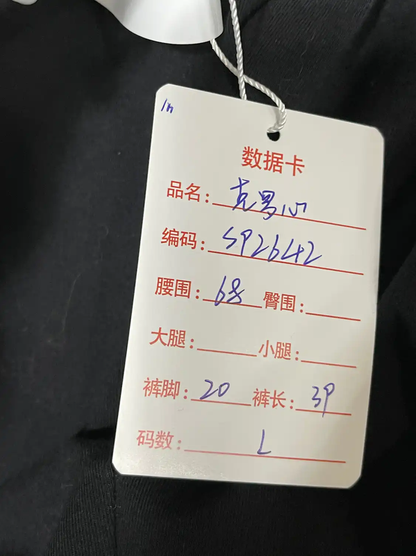 数据卡
品名：克罗心
编码：SP2642
腰围：68 臀围：
大腿： 小腿：
裤脚：20 裤长：39
码数：L